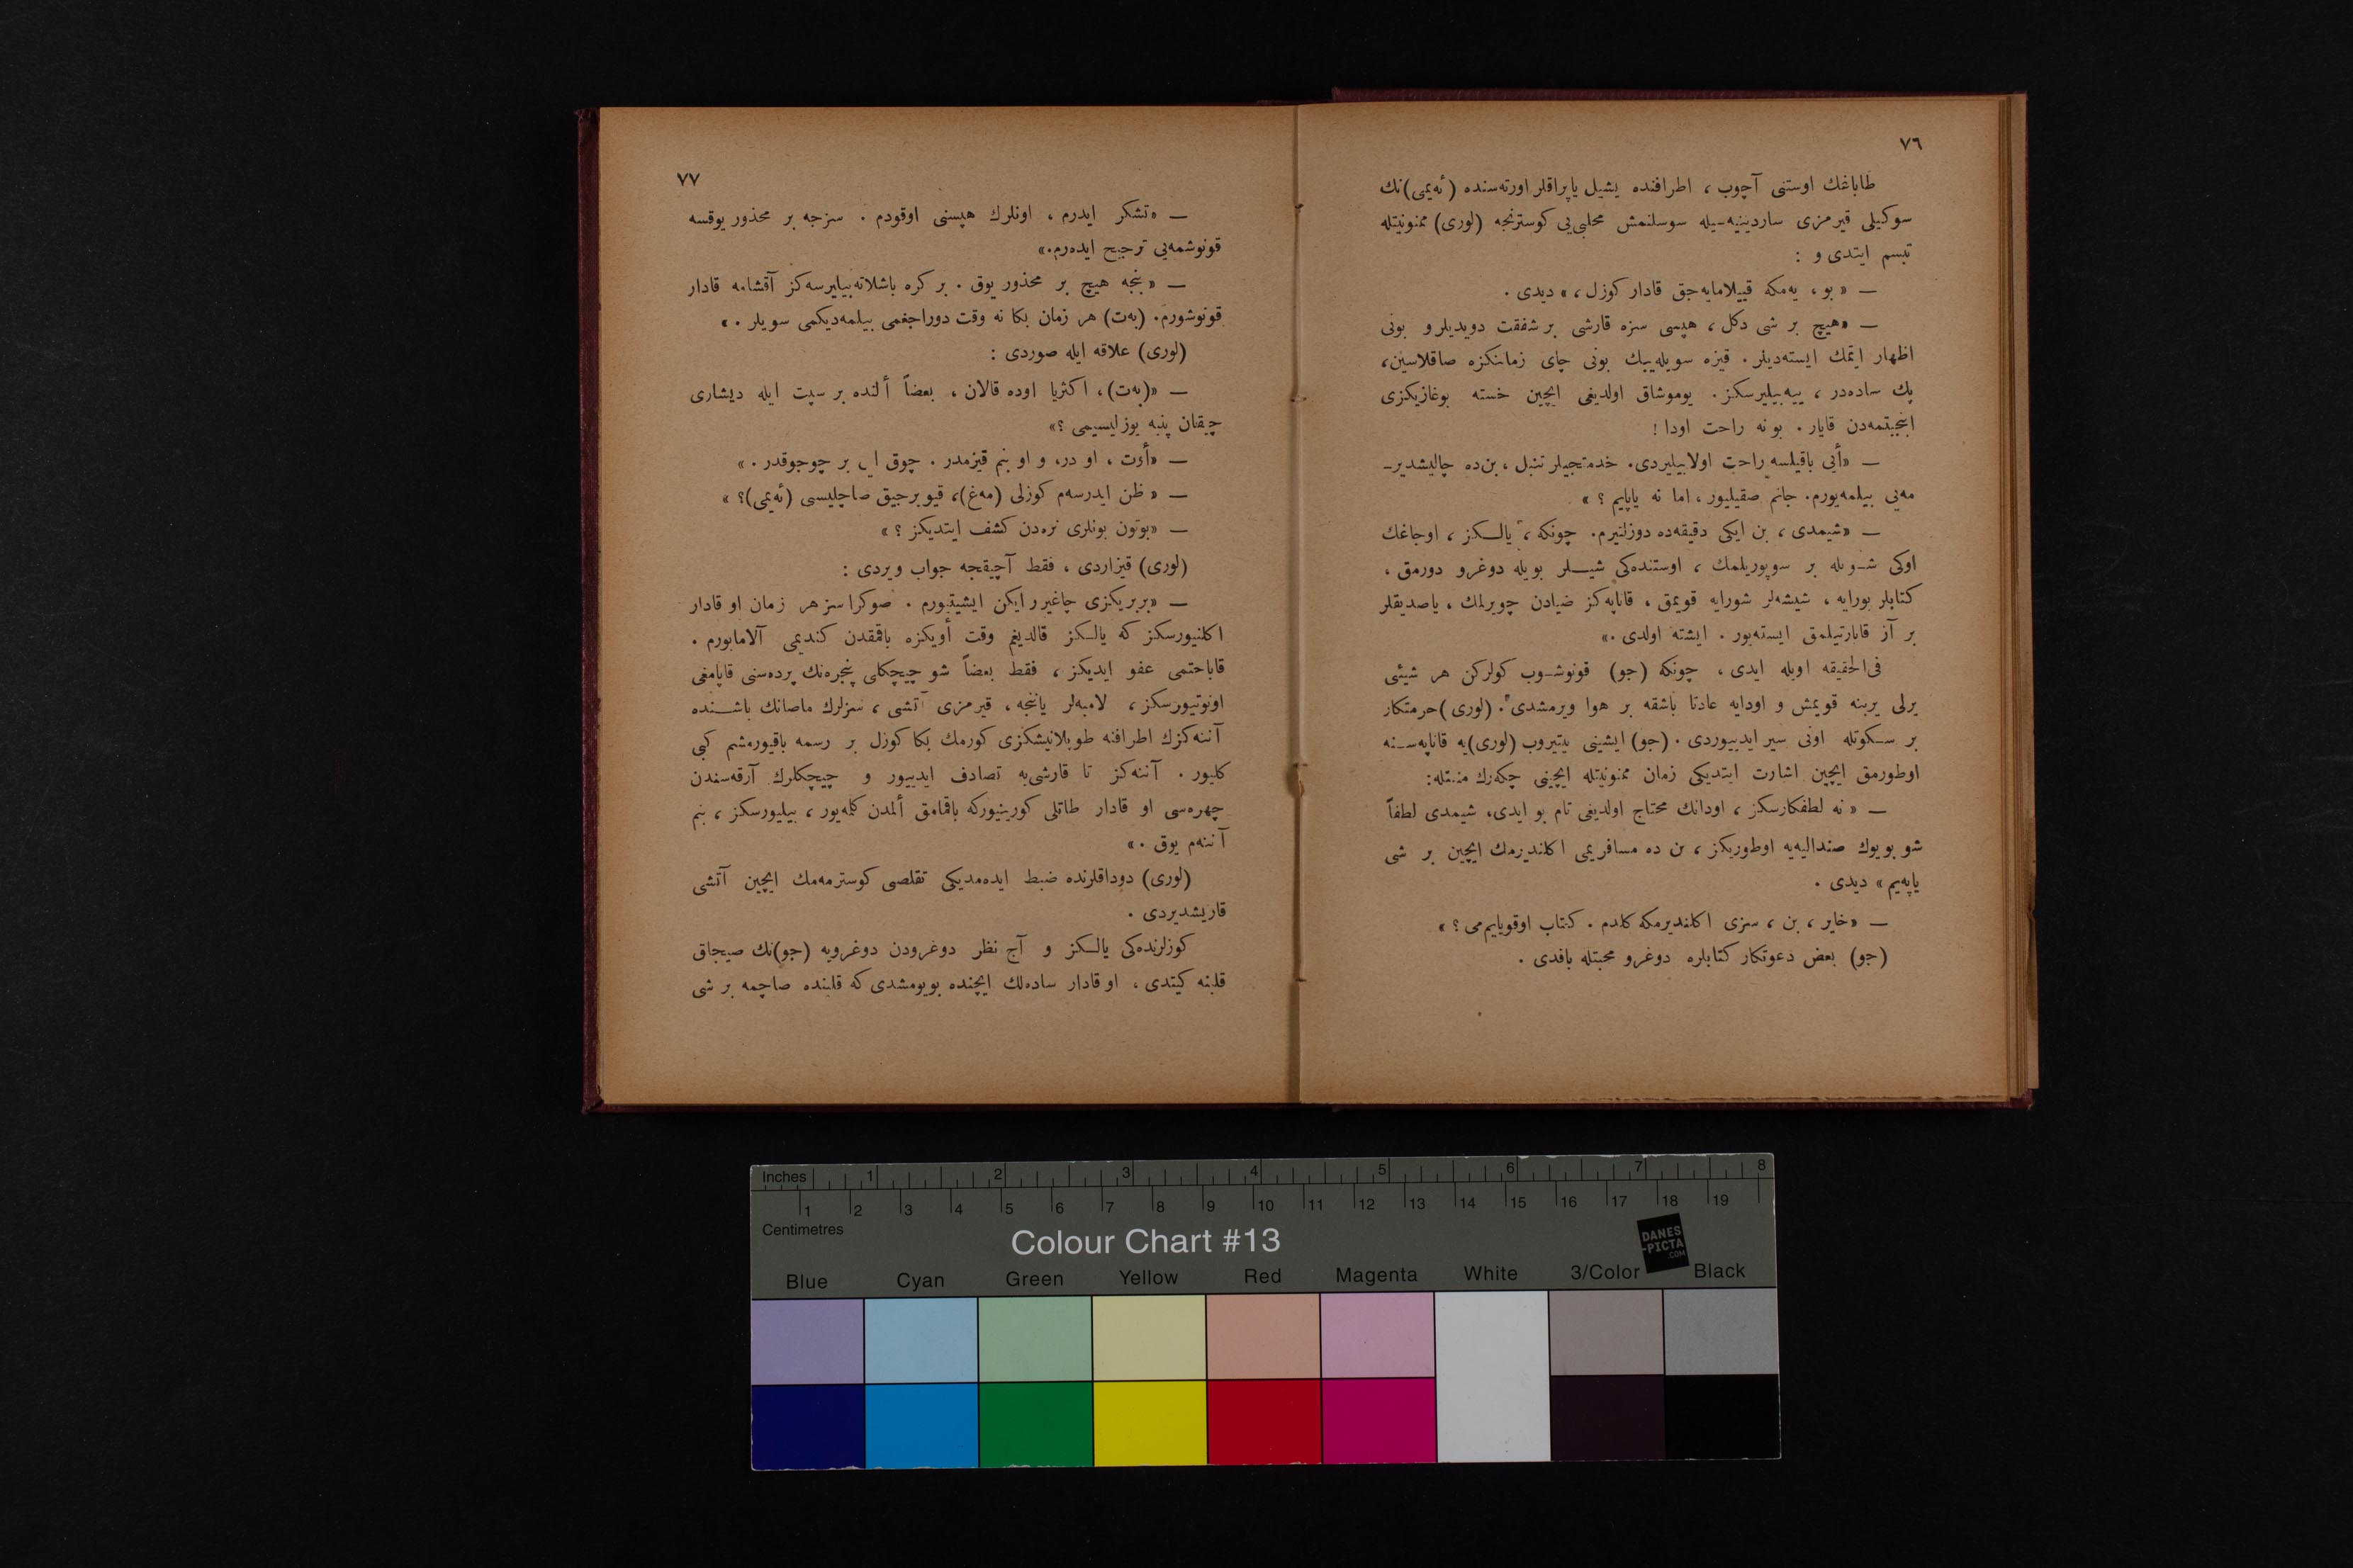 ٧٦
طاباغك اوستنی آچوب ، اطرافنده یشیل یاپراقلر اورته‌سنده (ئه‌یمی)نك
سوكیلی قیرمزی ساردینیه‌ـیله سوسلنمش محلبی‌یی كوسترنجه (لوری) ممنونیتله
تبسم ایتدی و :
— « بو ، یه‌مكه قییلامایه‌جق قادار كوزل ، » دیدی .
— «هیچ بر شی دكل ، هپسی سزه قارشی بر شفقت دویدیلر و بونی
اظهار ایتمك ایسته‌دیلر . قیزه سویله‌ییك بونی چای زمانكزه صاقلاسین،
پك ساده‌در ، ییه‌بیلیرسكز . یوموشاق اولدیغی ایچین خسته بوغازیكزی
اینجیتمه‌دن قایار . بو نه راحت اودا !
— «أیی باقیلسه راحت اولابیلیردی. خدمتجیلر تنبل ، بن‌ده چالیشدیر-
مه‌یی بیلمه‌یورم. جانم صقیلیور ، اما نه یاپایم ؟ »
— «شیمدی ، بن ایكی دقیقه‌ده دوزلتیرم. چونكه ، یالـكز ، اوجاغك
اوكی شـویله بر سوپوریلمك ، اوستنده‌كی شیـلر بویله دوغرو دورمق ،
كتابلر بورایه ، شیشه‌لر شورایه قویمق ، قاناپه‌كز ضیادن چویرلمك ، یاصدیقلر
بر آز قابارتیلمق ایسته‌یور . ایشته اولدی .»
فی‌الحقیقه اویله ایدی ، چونكه (جو) قونوشـوب كولركن هر شیئی
یرلی یرینه قویمش و اودایه عادتا باشقه بر هوا ویرمشدی . (لوری) حرمتكار
بر سـكوتله اونی سیر ایدییوردی . (جو) ایشینی یتیروب (لوری)یه قاناپه‌سـنه
اوطورمق ایچین اشارت ایتدیكی زمان ممنونیتله ایچینی چكه‌رك منتله:
— « نه لطفكارسكز ، اودانك محتاج اولدیغی تام بو ایدی، شیمدی لطفاً
شو بویوك صندالیه‌یه اوطوریكز ، بن ده مسافریمی اكلندیرمك ایچین بر شی
یاپه‌یم » دیدی .
— «خایر ، بن ، سزی اكلندیرمكه كلدم . كتاب اوقویایم‌می ؟ »
(جو) بعض دعوتكار كتابلره دوغرو محبتله باقدی .
٧٧
— «تشكر ایدرم ، اونلرك هپسنی اوقودم . سزجه بر محذور یوقسه
قونوشمه‌یی ترجیح ایده‌رم.»
— « بنجه هیچ بر محذور یوق . بر كره باشلاته‌بیلیرسه‌كز آقشامه قادار
قونوشورم. (به‌ت) هر زمان بكا نه وقت دوراجغمی بیلمه‌دیكمی سویلر . »
(لوری) علاقه ایله صوردی :
— «(به‌ت) ، اكثریا اوده قالان ، بعضاً ألنده بر سپت ایله دیشاری
چیقان پنبه یوزلیسیمی ؟»
— «أوت ، او در، و او بنم قیزمدر . چوق بر چوجوقدر . »
— « ظن ایدرسه‌م كوزلی (مه‌غ)، قیوبرجیق صاچلیسی (ئه‌یمی)؟ »
— «بوتون بونلری نره‌دن كشف ایتدیكز ؟ »
(لوری) قیزاردی ، فقط آچیقجه جواب ویردی :
— «بربریكزی چاغیررایكن ایشیتیورم . صوكرا سز هر زمان او قادار
اكلنیورسكز كه یالـكز قالدیغم وقت أویكزه باقمقدن كندیمی آلامایورم .
قاباحتمی عفو ایدیكز ، فقط بعضاً شو چیچكلی پنجره‌نك پرده‌سنی قاپامغی
اونوتیورسكز ، لامبه‌لر یاننجه ، قیرمزی آتشی ، سزلرك ماصانك باشـنده
آننه‌كزك اطرافنه طوپلانیشكزی كورمك بكا كوزل بر رسمه باقیورمشم كبی
كلیور . آننه‌كز تا قارشی‌یه تصادف ایدییور و چیچكلرك آرقه‌سندن
چهره‌سی او قادار طاتلی كورینیوركه باقمامق ألمدن كلمه‌یور ، بیلیورسكز ، بنم
آننه‌م یوق . »
(لوری) دوداقلرنده ضبط ایده‌مدیكی تقلصی كوسترمه‌مك ایچین آتشی
قاریشدیردی .
كوزلرنده‌كی یالـكز و آج نظر دوغرودن دوغرویه (جو)نك صیجاق
قلبنه كیتدی ، او قادار ساده‌لك ایچنده بویومشدی كه قلبنده صاچمه بر شی
Inches 1 2 3 4 5 6 7 8
1 2 3 4 5 6 7 8 9 10 11 12 13 14 15 16 17 18 19
Centimetres
Colour Chart #13
DANES
-PICTA
.COM
Blue Cyan Green Yellow Red Magenta White 3/Color Black